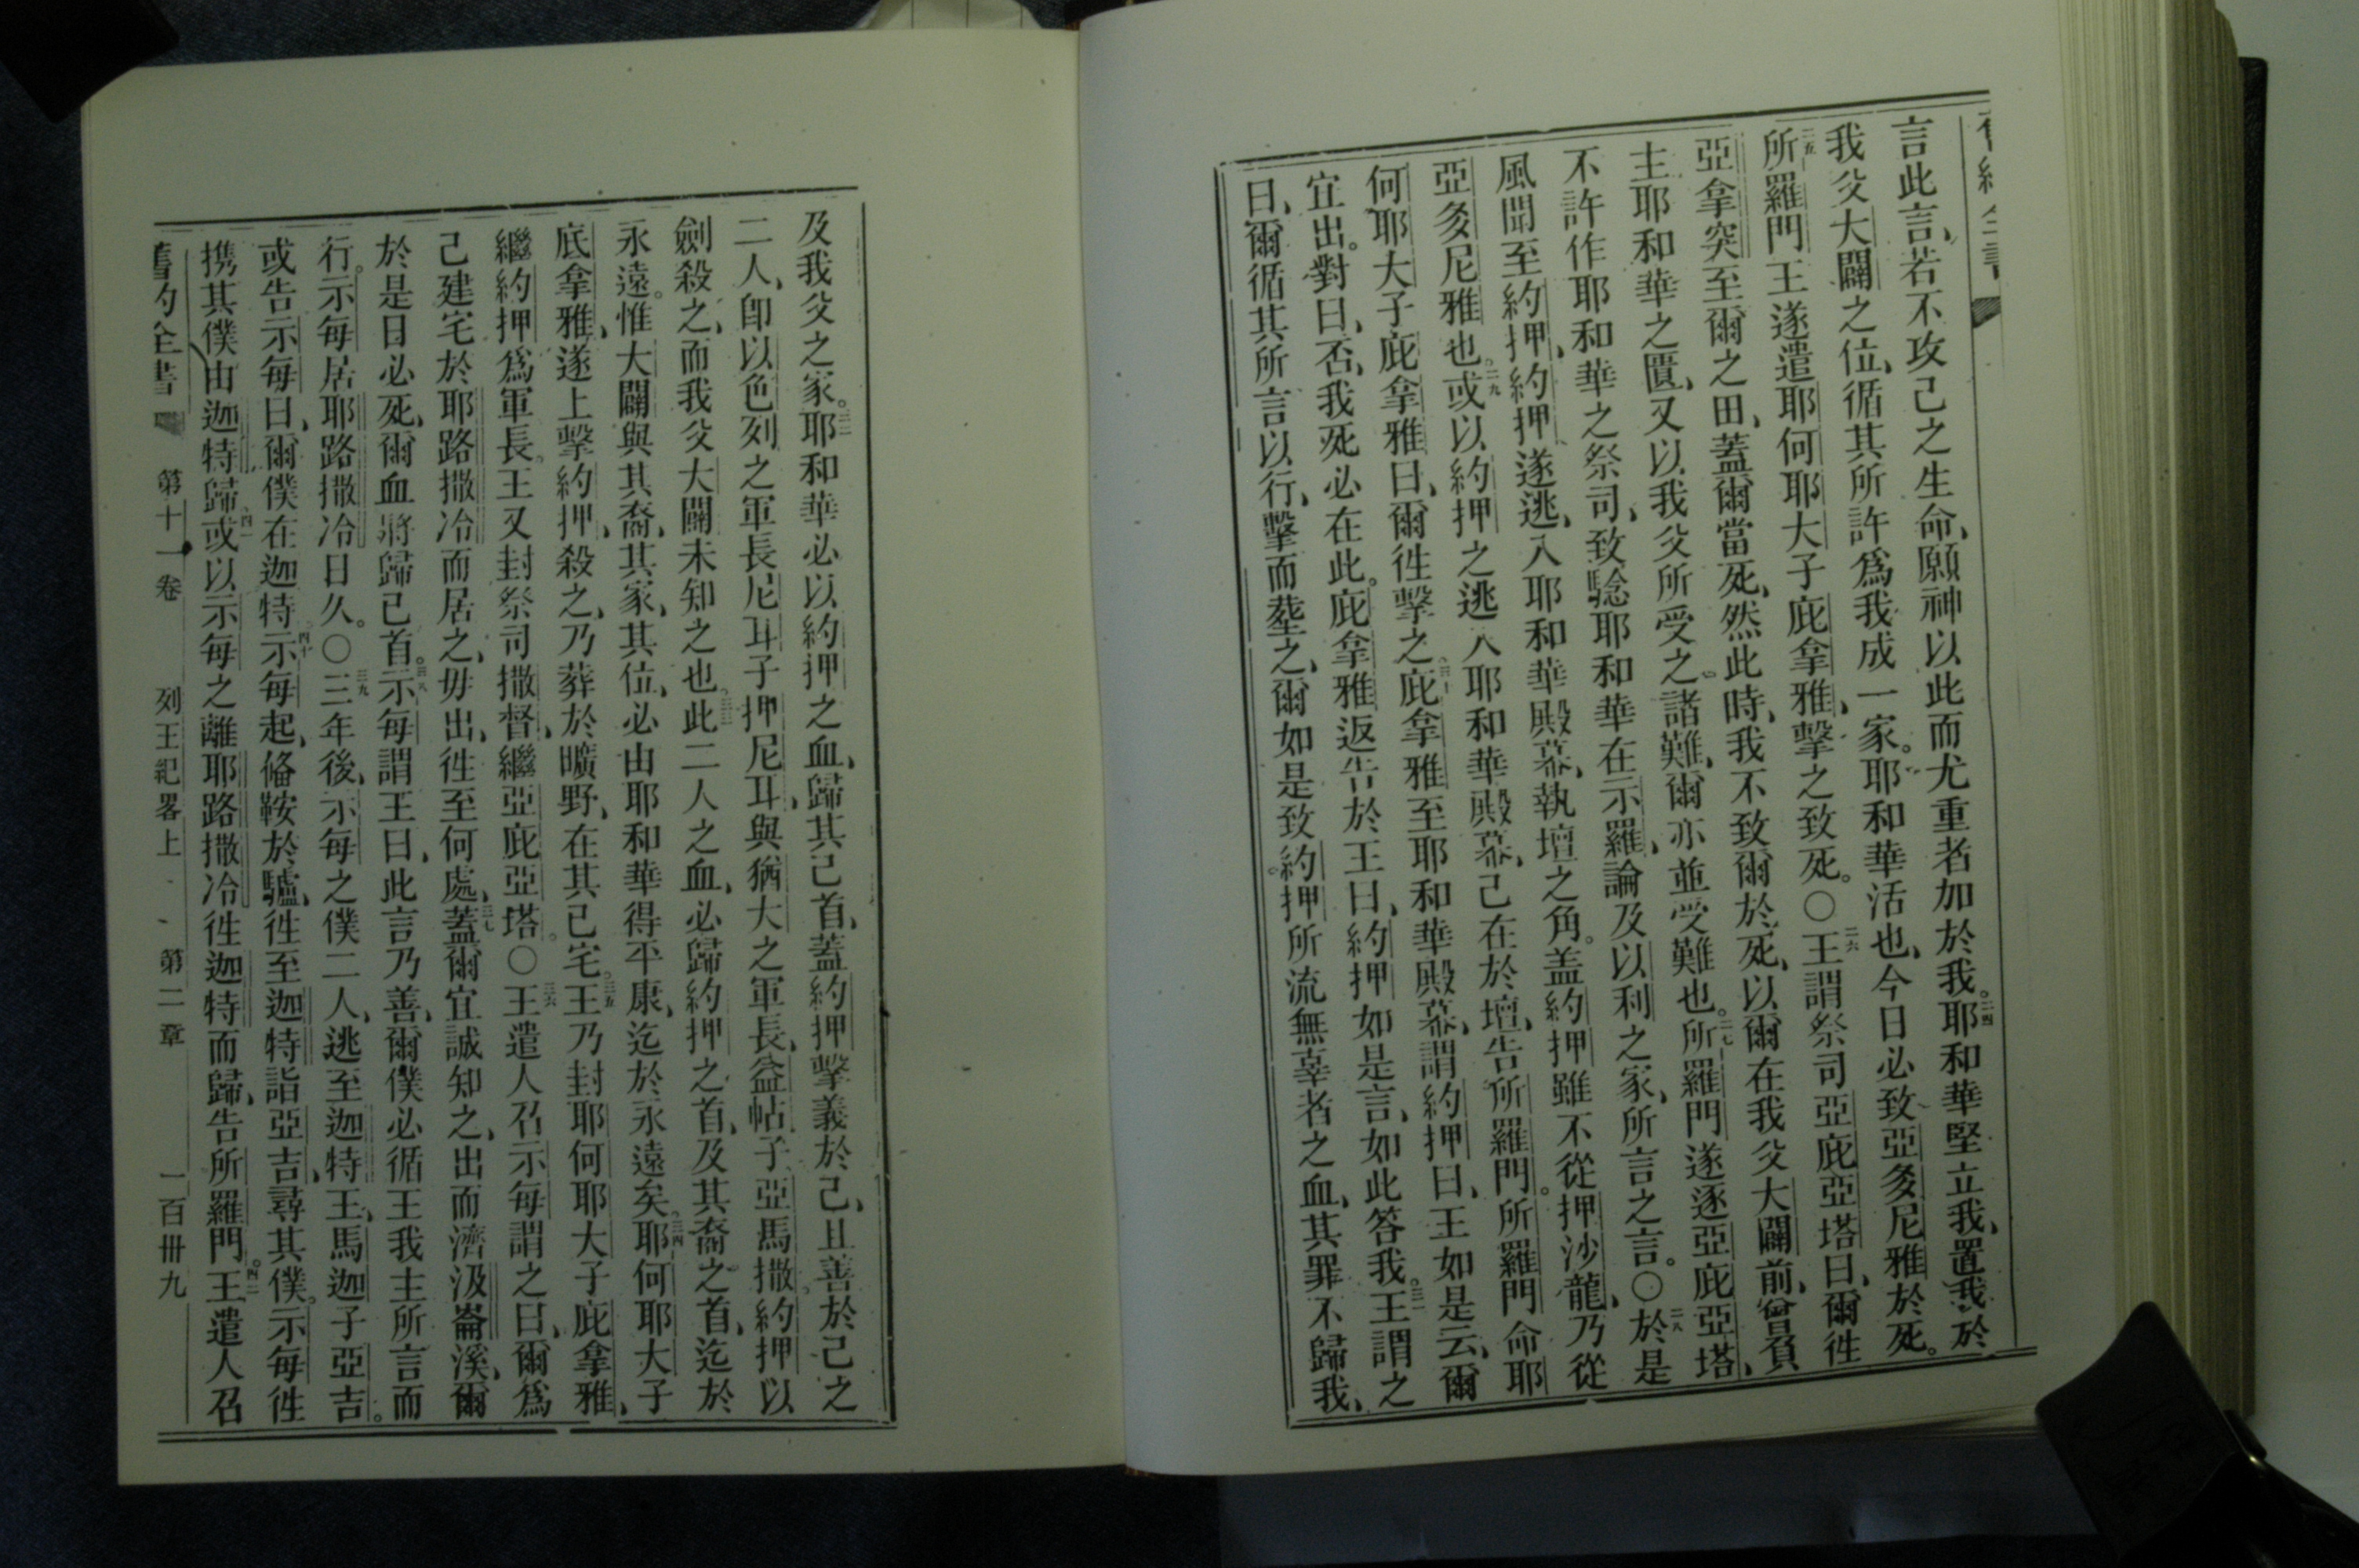 言此言、若不攻己之生命、願神以此而尤重者加於我。二四耶和華堅立我、置我於
我父大闢之位、循其所許爲我成一家。耶和華活也、今日必致亞多尼雅於死。
二五所羅門王遂遣耶何耶大子庇拿雅、擊之致死。〇二六王謂祭司亞庇亞塔曰、爾徃
亞拿突至爾之田、蓋爾當死、然此時、我不致爾於死、以爾在我父大闢前、曾負
主耶和華之匱、又以我父所受之諸難、爾亦並受難也。二七所羅門遂逐亞庇亞塔、
不許作耶和華之祭司、致騐耶和華在示羅、論及以利之家、所言之言。〇二八於是
風聞至約押、約押遂逃、入耶和華殿幕、執壇之角。盖約押雖不從押沙龍、乃從
亞多尼雅也。二九或以約押之逃入耶和華殿幕、己在於壇、告所羅門。所羅門命耶
何耶大子庇拿雅曰、爾徃擊之。三十庇拿雅至耶和華殿幕、謂約押曰、王如是云、爾
宜出。對曰、否、我死必在此。庇拿雅返告於王曰、約押如是言、如此答我。三一王謂之
曰、爾循其所言以行、擊而塟之、爾如是致約押所流無辜者之血、其罪不歸我、
及我父之家。三二耶和華必以約押之血、歸其己首、蓋約押擊義於己、且善於己之
二人、卽以色列之軍長尼耳子押尼耳、與猶大之軍長益帖子亞馬撒、約押以
劍殺之、而我父大闢未知之也。三三此二人之血、必歸約押之首、及其裔之首、迄於
永遠。惟大闢與其裔、其家、其位、必由耶和華得平康、迄於永遠矣。三四耶何耶大子
庇拿雅、遂上擊約押、殺之、乃葬於曠野、在其己宅。三五王乃封耶何耶大子庇拿雅、
繼約押爲軍長。王又封祭司撒督、繼亞庇亞塔。〇三六王遣人召示每謂之曰、爾爲
己建宅於耶路撒冷而居之、毋出、徃至何處、三七蓋爾宜誠知之、出而濟汲崙溪、爾
於是日必死、爾血將歸己首。三八示每謂王曰、此言乃善、爾僕必循王我主所言而
行。示每居耶路撒冷日久。〇三九三年後、示每之僕二人、逃至迦特王、馬迦子亞吉。
或告示每曰、爾僕在迦特。四十示每起、偹鞍於驢、徃至迦特、詣亞吉、尋其僕。示每徃
携其僕由迦特歸。四一或以示每之離耶路撒冷徃迦特而歸、告所羅門。四二王遣人召
舊約全書 第十一卷 列王紀畧上 第二章 一百卅九